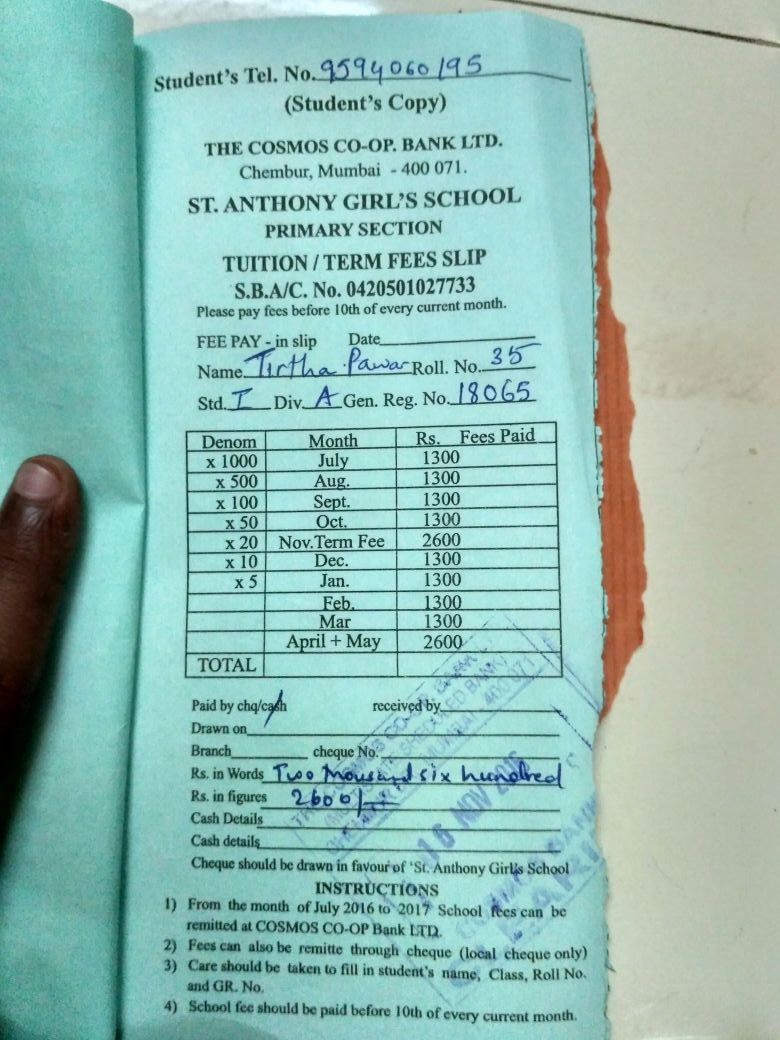 Student's Tel. No. 9594060195
(Student's Copy)
THE COSMOS CO-OP. BANK LTD.
Chembur, Mumbai - 400 071.
ST. ANTHONY GIRL'S SCHOOL
PRIMARY SECTION
TUITION / TERM FEES SLIP
S.B.A/C. No. 0420501027733
Please pay fees before 10th of every current month.
FEE PAY - in slip Date
Name Tirtha Pawar Roll. No. 35
Std. I Div. A Gen. Reg. No. 18065
Denom Month Rs. Fees Paid
x 1000 July 1300
x 500 Aug. 1300
x 100 Sept. 1300
x 50 Oct. 1300
x 20 Nov.Term Fee 2600
x 10 Dec. 1300
x 5 Jan. 1300
Feb. 1300
Mar 1300
April + May 2600
TOTAL
Paid by chq/cash received by
Drawn on
Branch cheque No.
Rs. in Words Two thousand six hundred
Rs. in figures 2600/-
Cash Details
Cash details
Cheque should be drawn in favour of 'St. Anthony Girl's School
INSTRUCTIONS
1) From the month of July 2016 to 2017 School fees can be
remitted at COSMOS CO-OP Bank LTD.
2) Fees can also be remitte through cheque (local cheque only)
3) Care should be taken to fill in student's name, Class, Roll No.
and GR. No.
4) School fee should be paid before 10th of every current month.
THE COSMOS CO-OP. BANK
SCHEDULED BANK
MUMBAI 400 071
16 NOV 2016